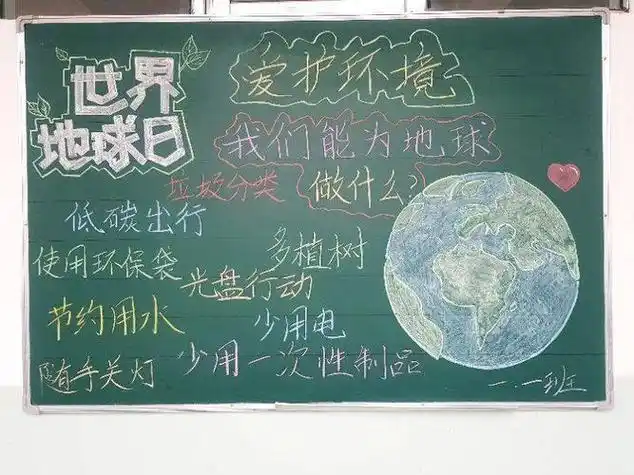 世界
地球日
爱护环境
我们能为地球
做什么?
垃圾分类
低碳出行
多植树
使用环保袋
光盘行动
节约用水
少用电
随手关灯
少用一次性制品
一.一班